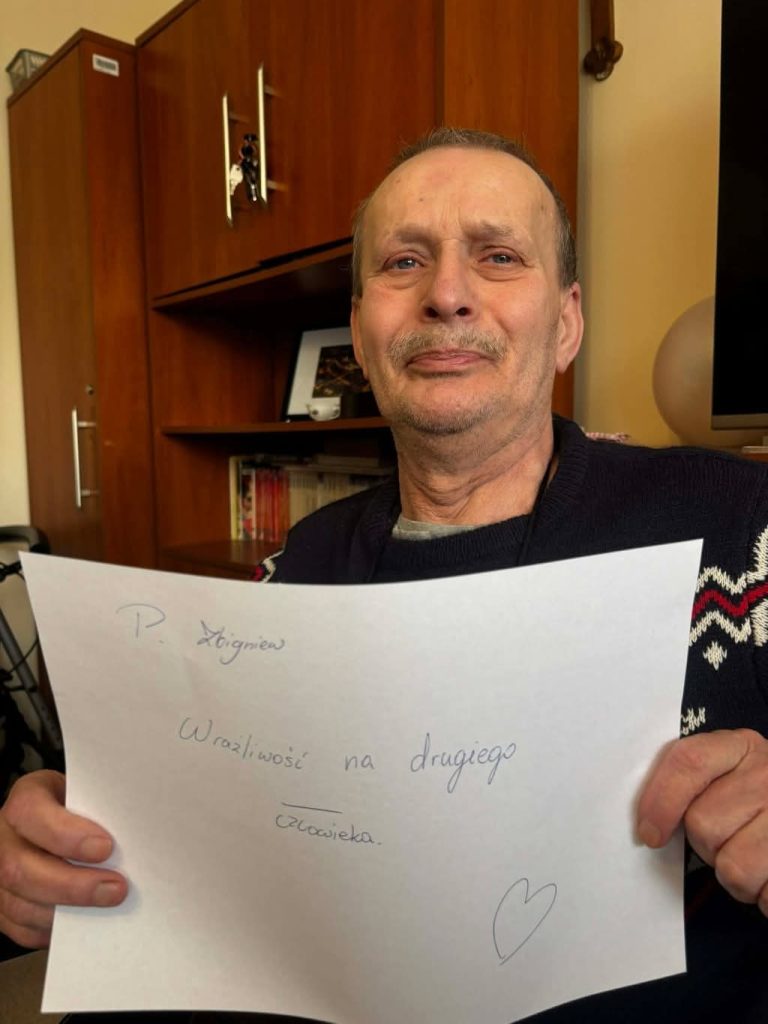 P. Zbigniew
Wrażliwość na drugiego
człowieka.